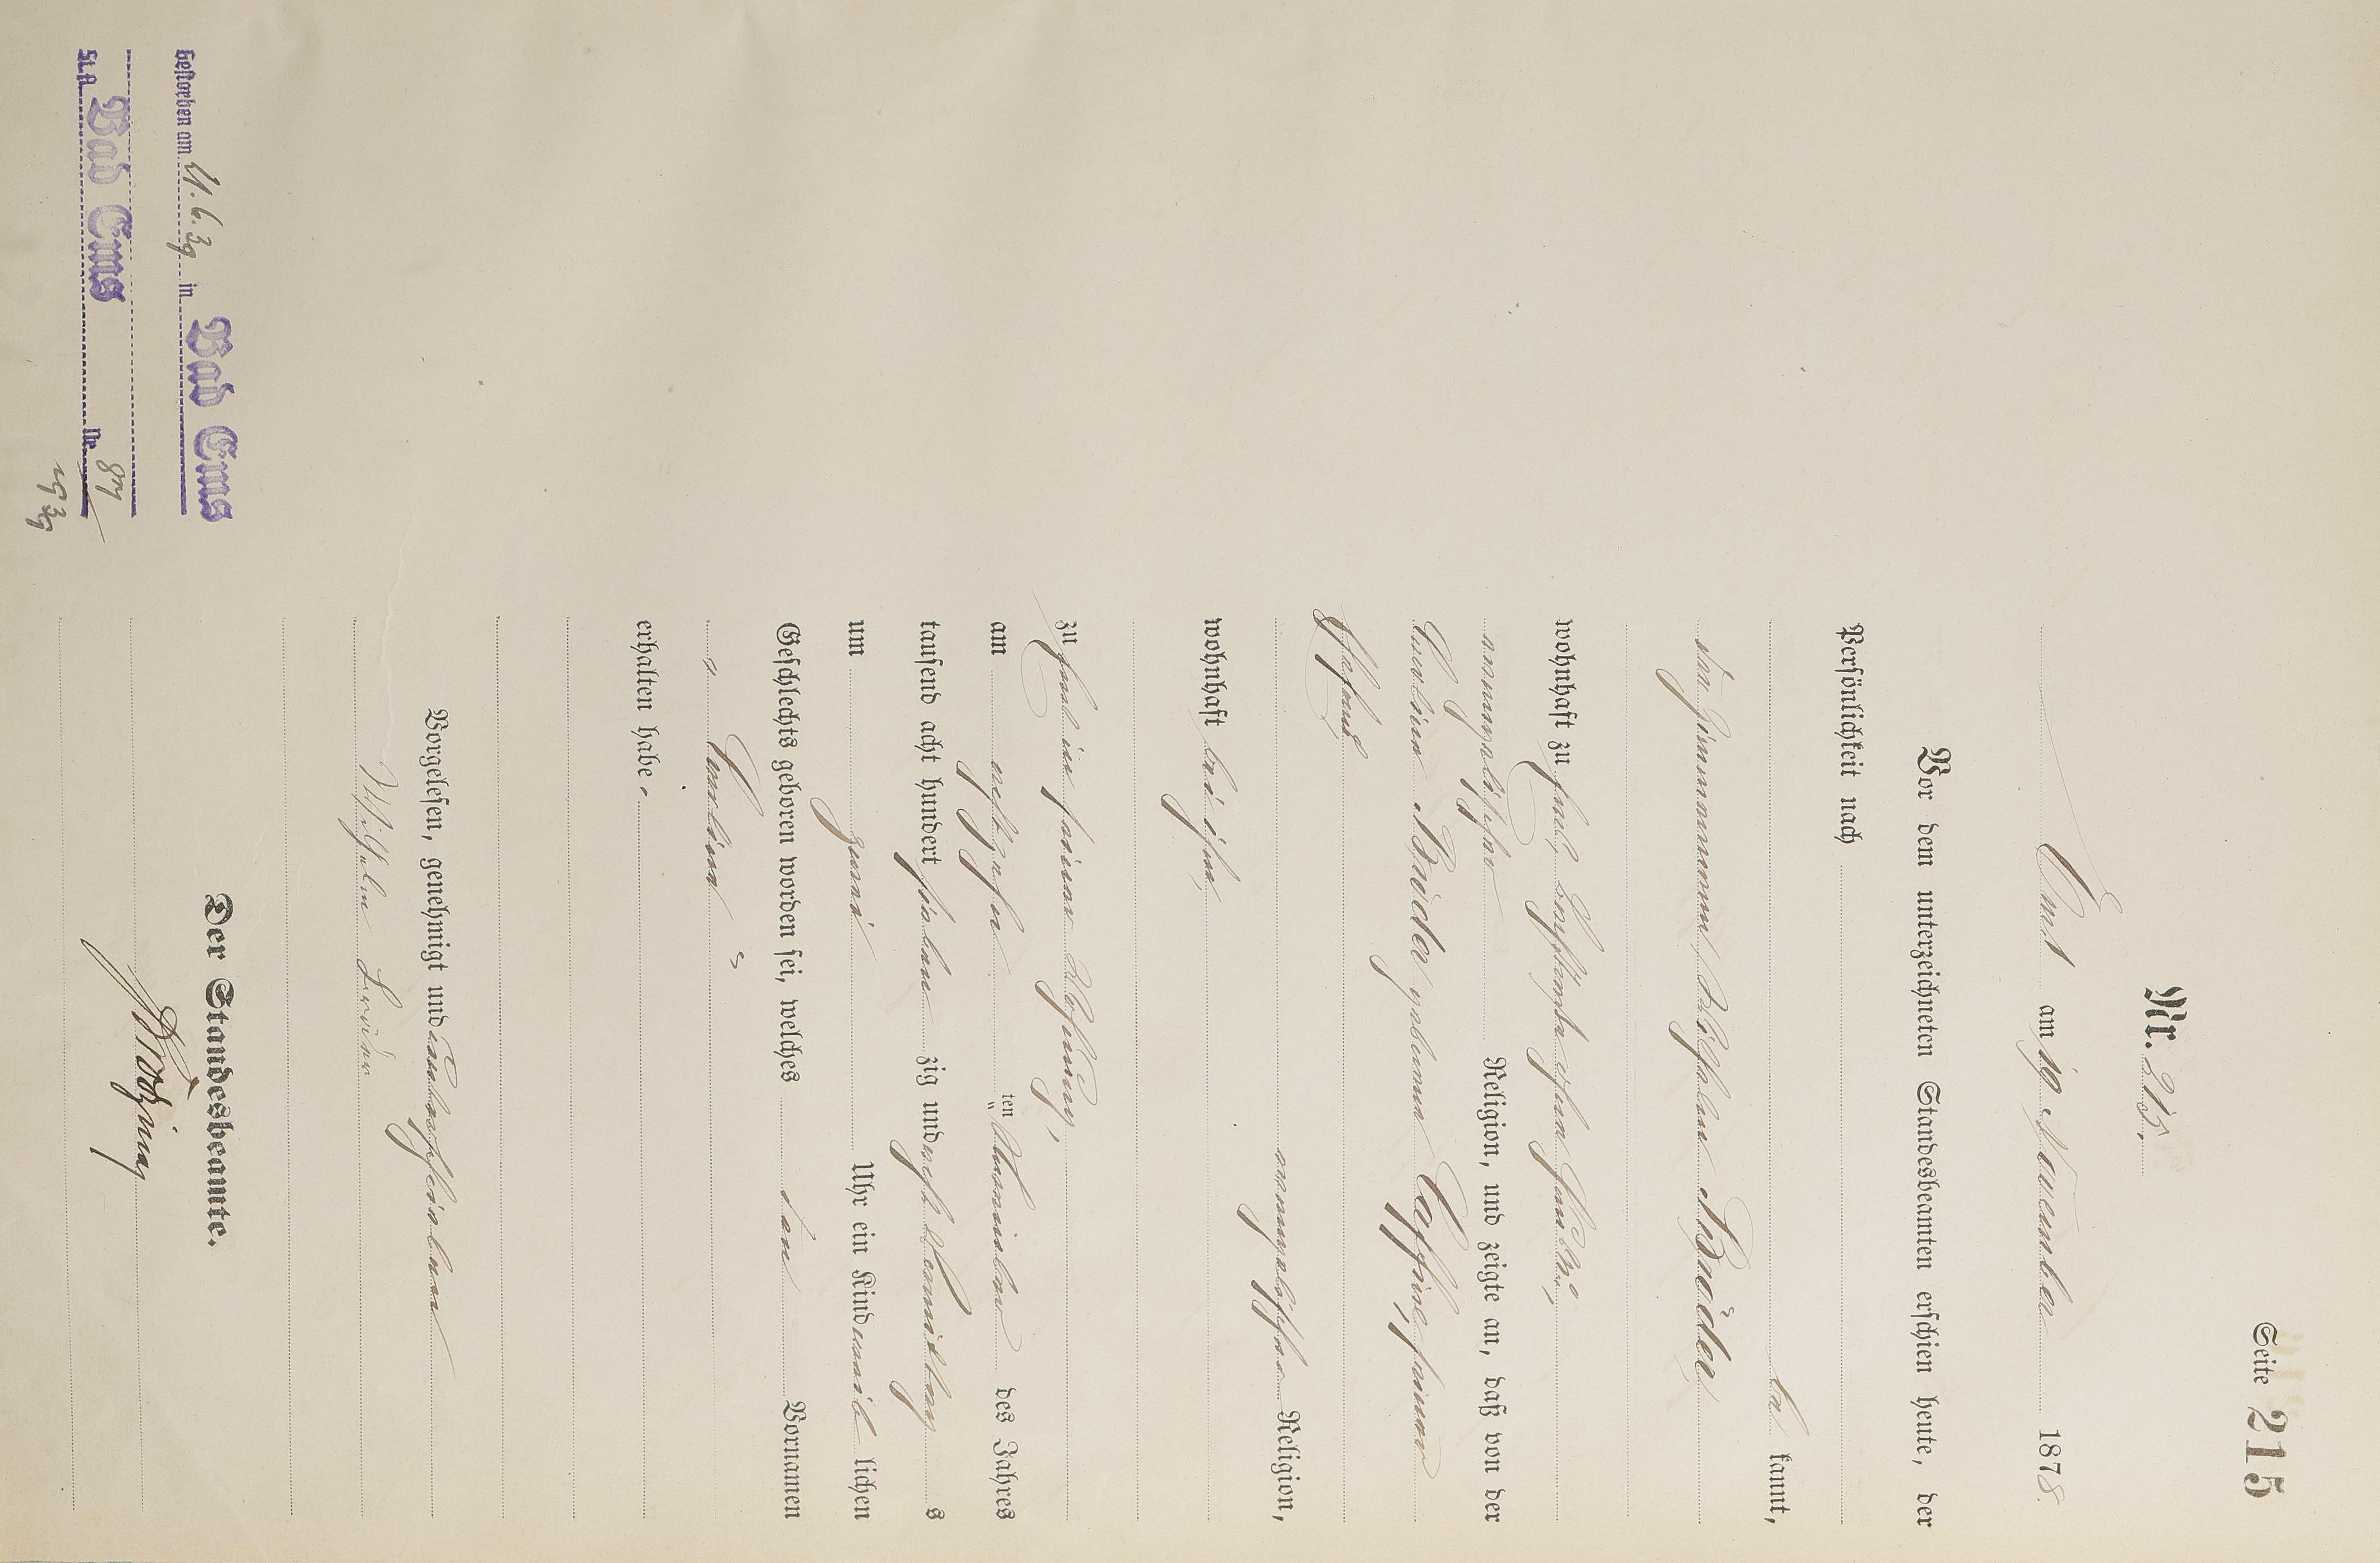 Seite 215
Nr. 215.
Ems am 19 November 1878.
Vor dem unterzeichneten Standesbeamten erschien heute, der
Persönlichkeit nach
be kannt,
der Zimmermann, Wilhelm Bröder
wohnhaft zu Ems,
evangelischer Religion, und zeigte an, daß von der
Caroline Bröder geborenen seiner
Ehefrau
evangelischer Religion,
wohnhaft bei ihm,
zu Ems in seiner Wohnung,
am achtzehnten November des Jahres
tausend acht hundert sieben zig und acht Vormittags
um zwei Uhr ein Kind weib lichen
Geschlechts geboren worden sei, welches den Vornamen
„ Caroline “
erhalten habe.
Vorgelesen, genehmigt und unterschrieben
Wilhelm Bröder
Der Standesbeamte.
Gestorben am 21. 6. 39 in Bad Ems
St.A. Bad Ems Nr. 87
1939